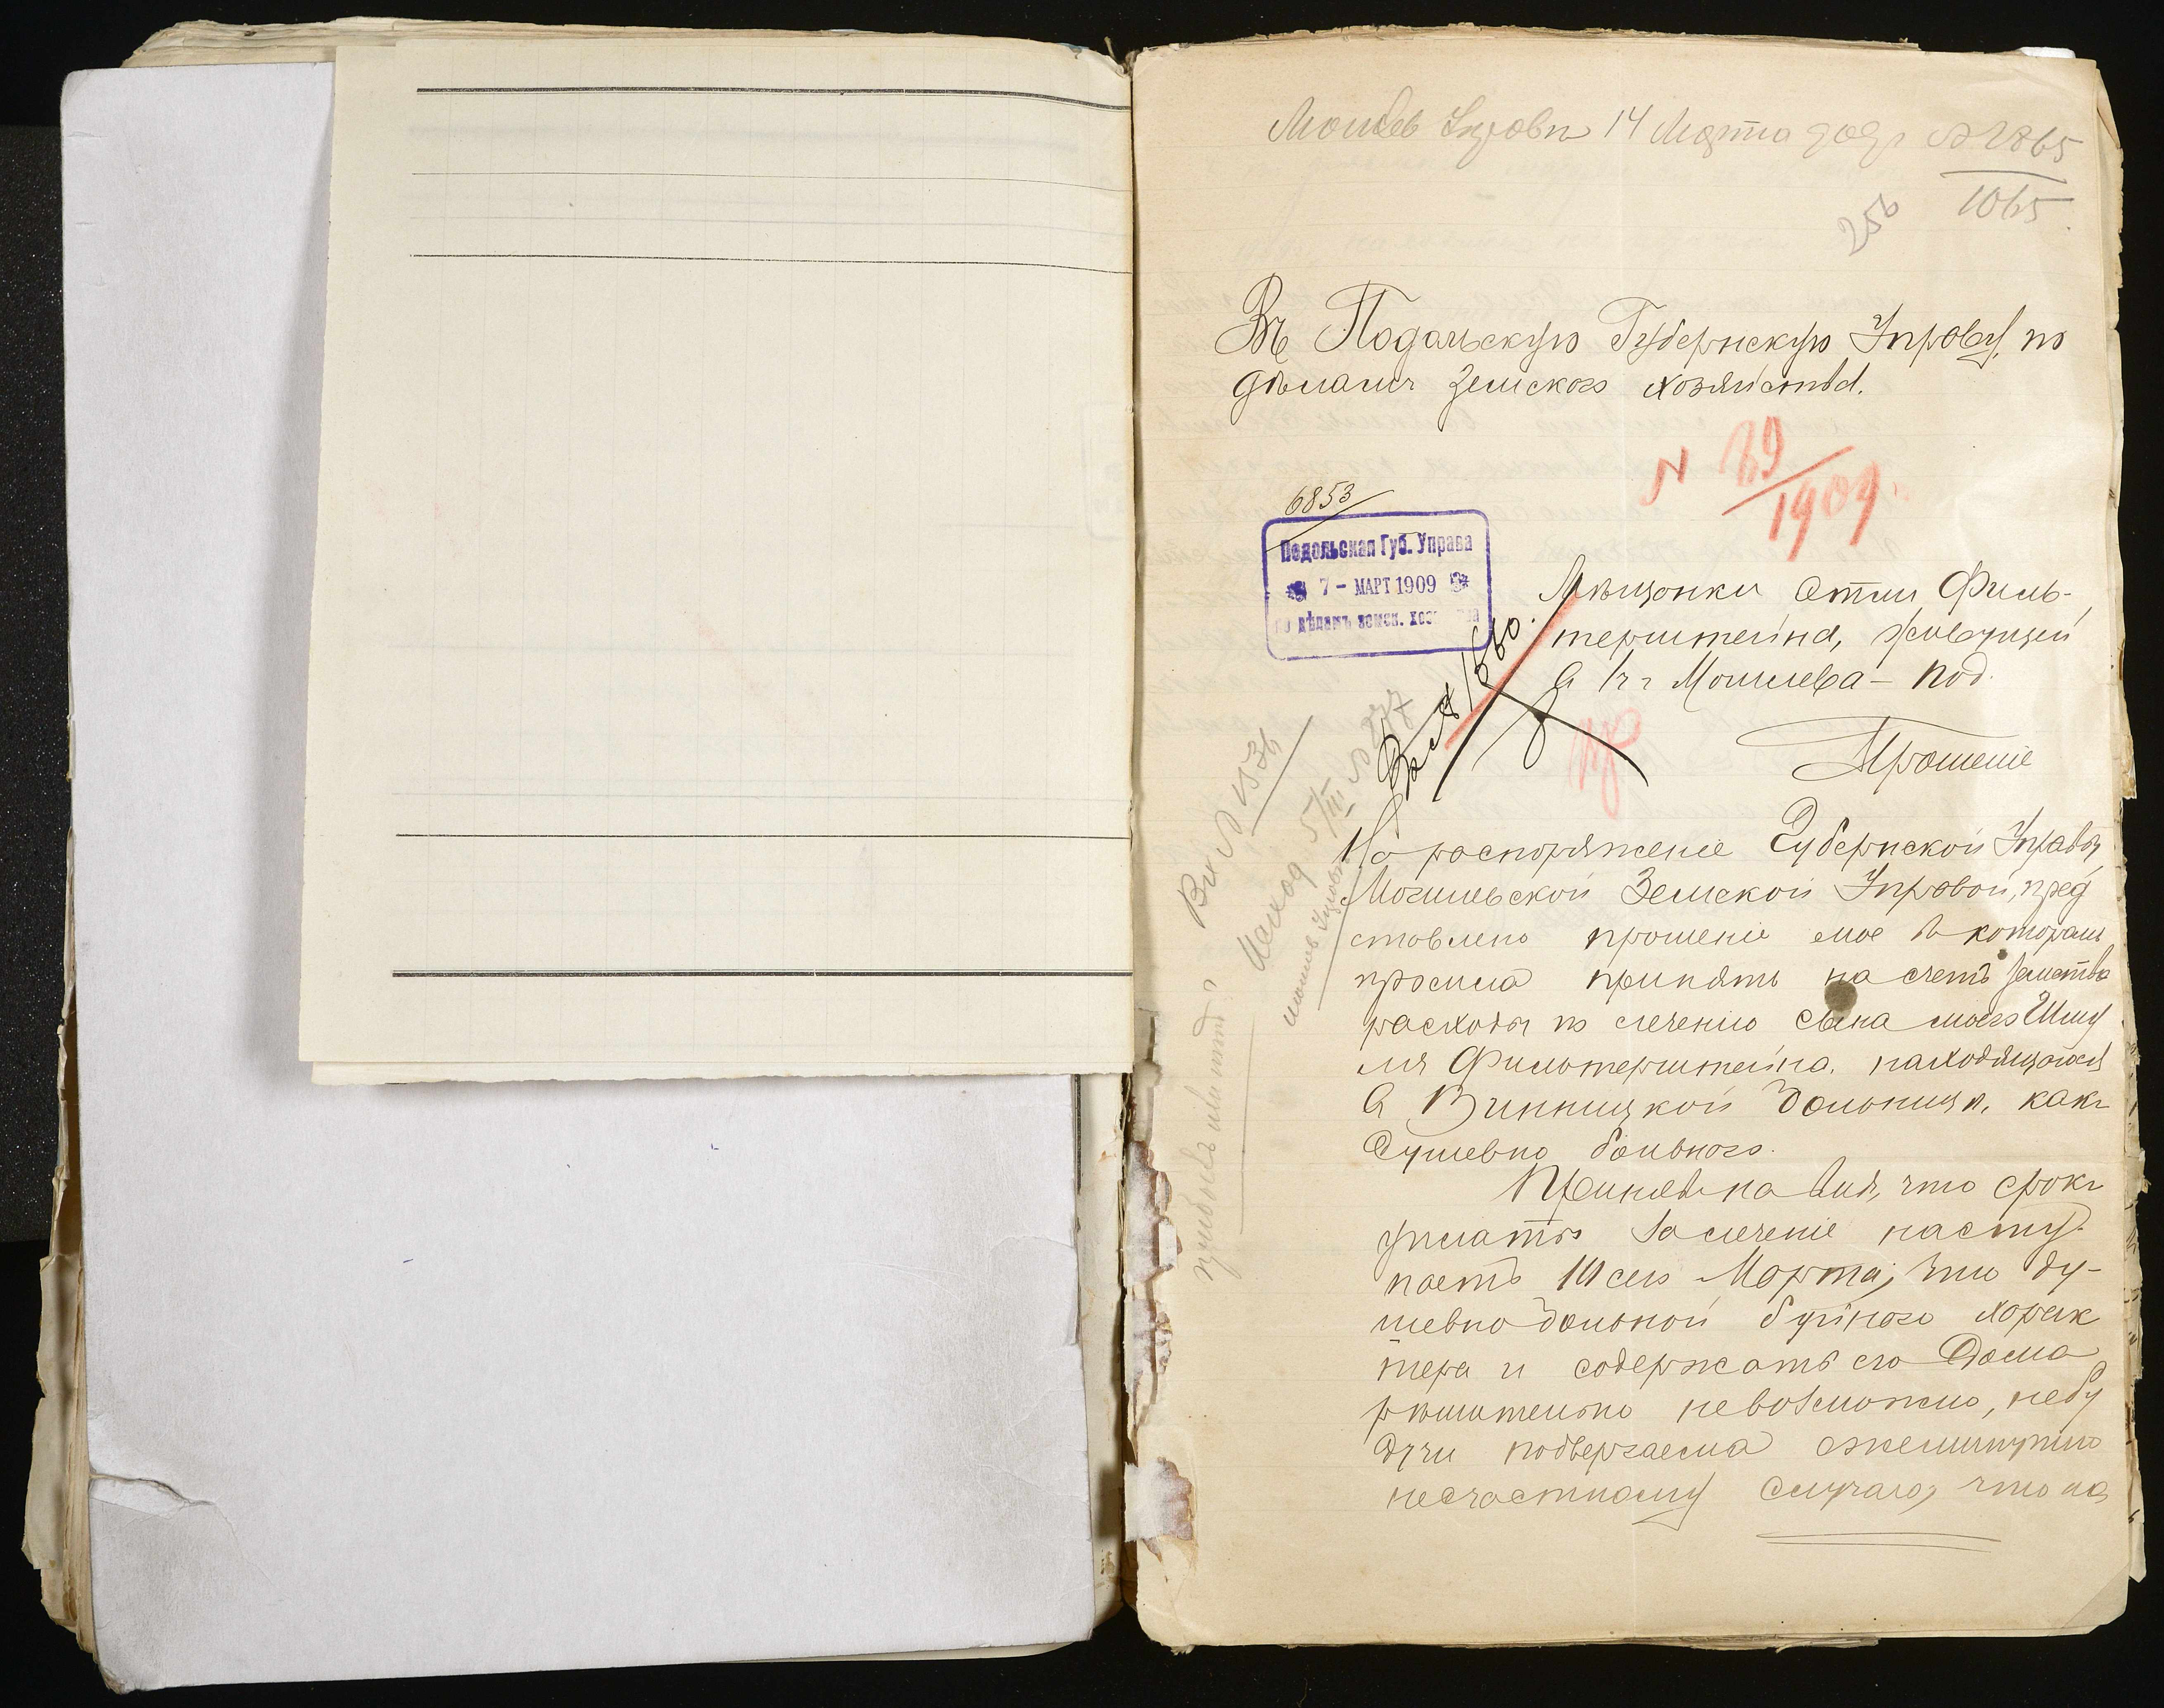 14 Марта 909 г № 2865
1065
256
Въ Подольскую Губернскую Управу, по
дѣламъ Земского хозяйства.
N 89/1909.
6853
Подольская Губ. Управа
7 - МАРТ 1909
по дѣламъ земск. хоз
Мѣщанки Филь-
терштейна, живущей
в г. Могилева - Под.
Прошеніе
На распоряженіе Губернской Управы,
Могилевской Земской Управой, пред
ставлено прошеніе мое въ которомъ
просила принять на счетъ Земства
расходы по лечению сына моего Шму
ля Фильтерштейна, находящагося
в Винницкой больницѣ, какъ
душевно больного.
Принявъ на видъ, что срокъ
уплаты за леченіе насту-
паетъ 14 сего Марта, что ду-
шевно больной буйного харак
тера и содержать его дома
рѣшительно невозможно, небу
дучи подвергаема ежеминутно
несчастному случаю, что на
Вх № 1536
5/III № 877